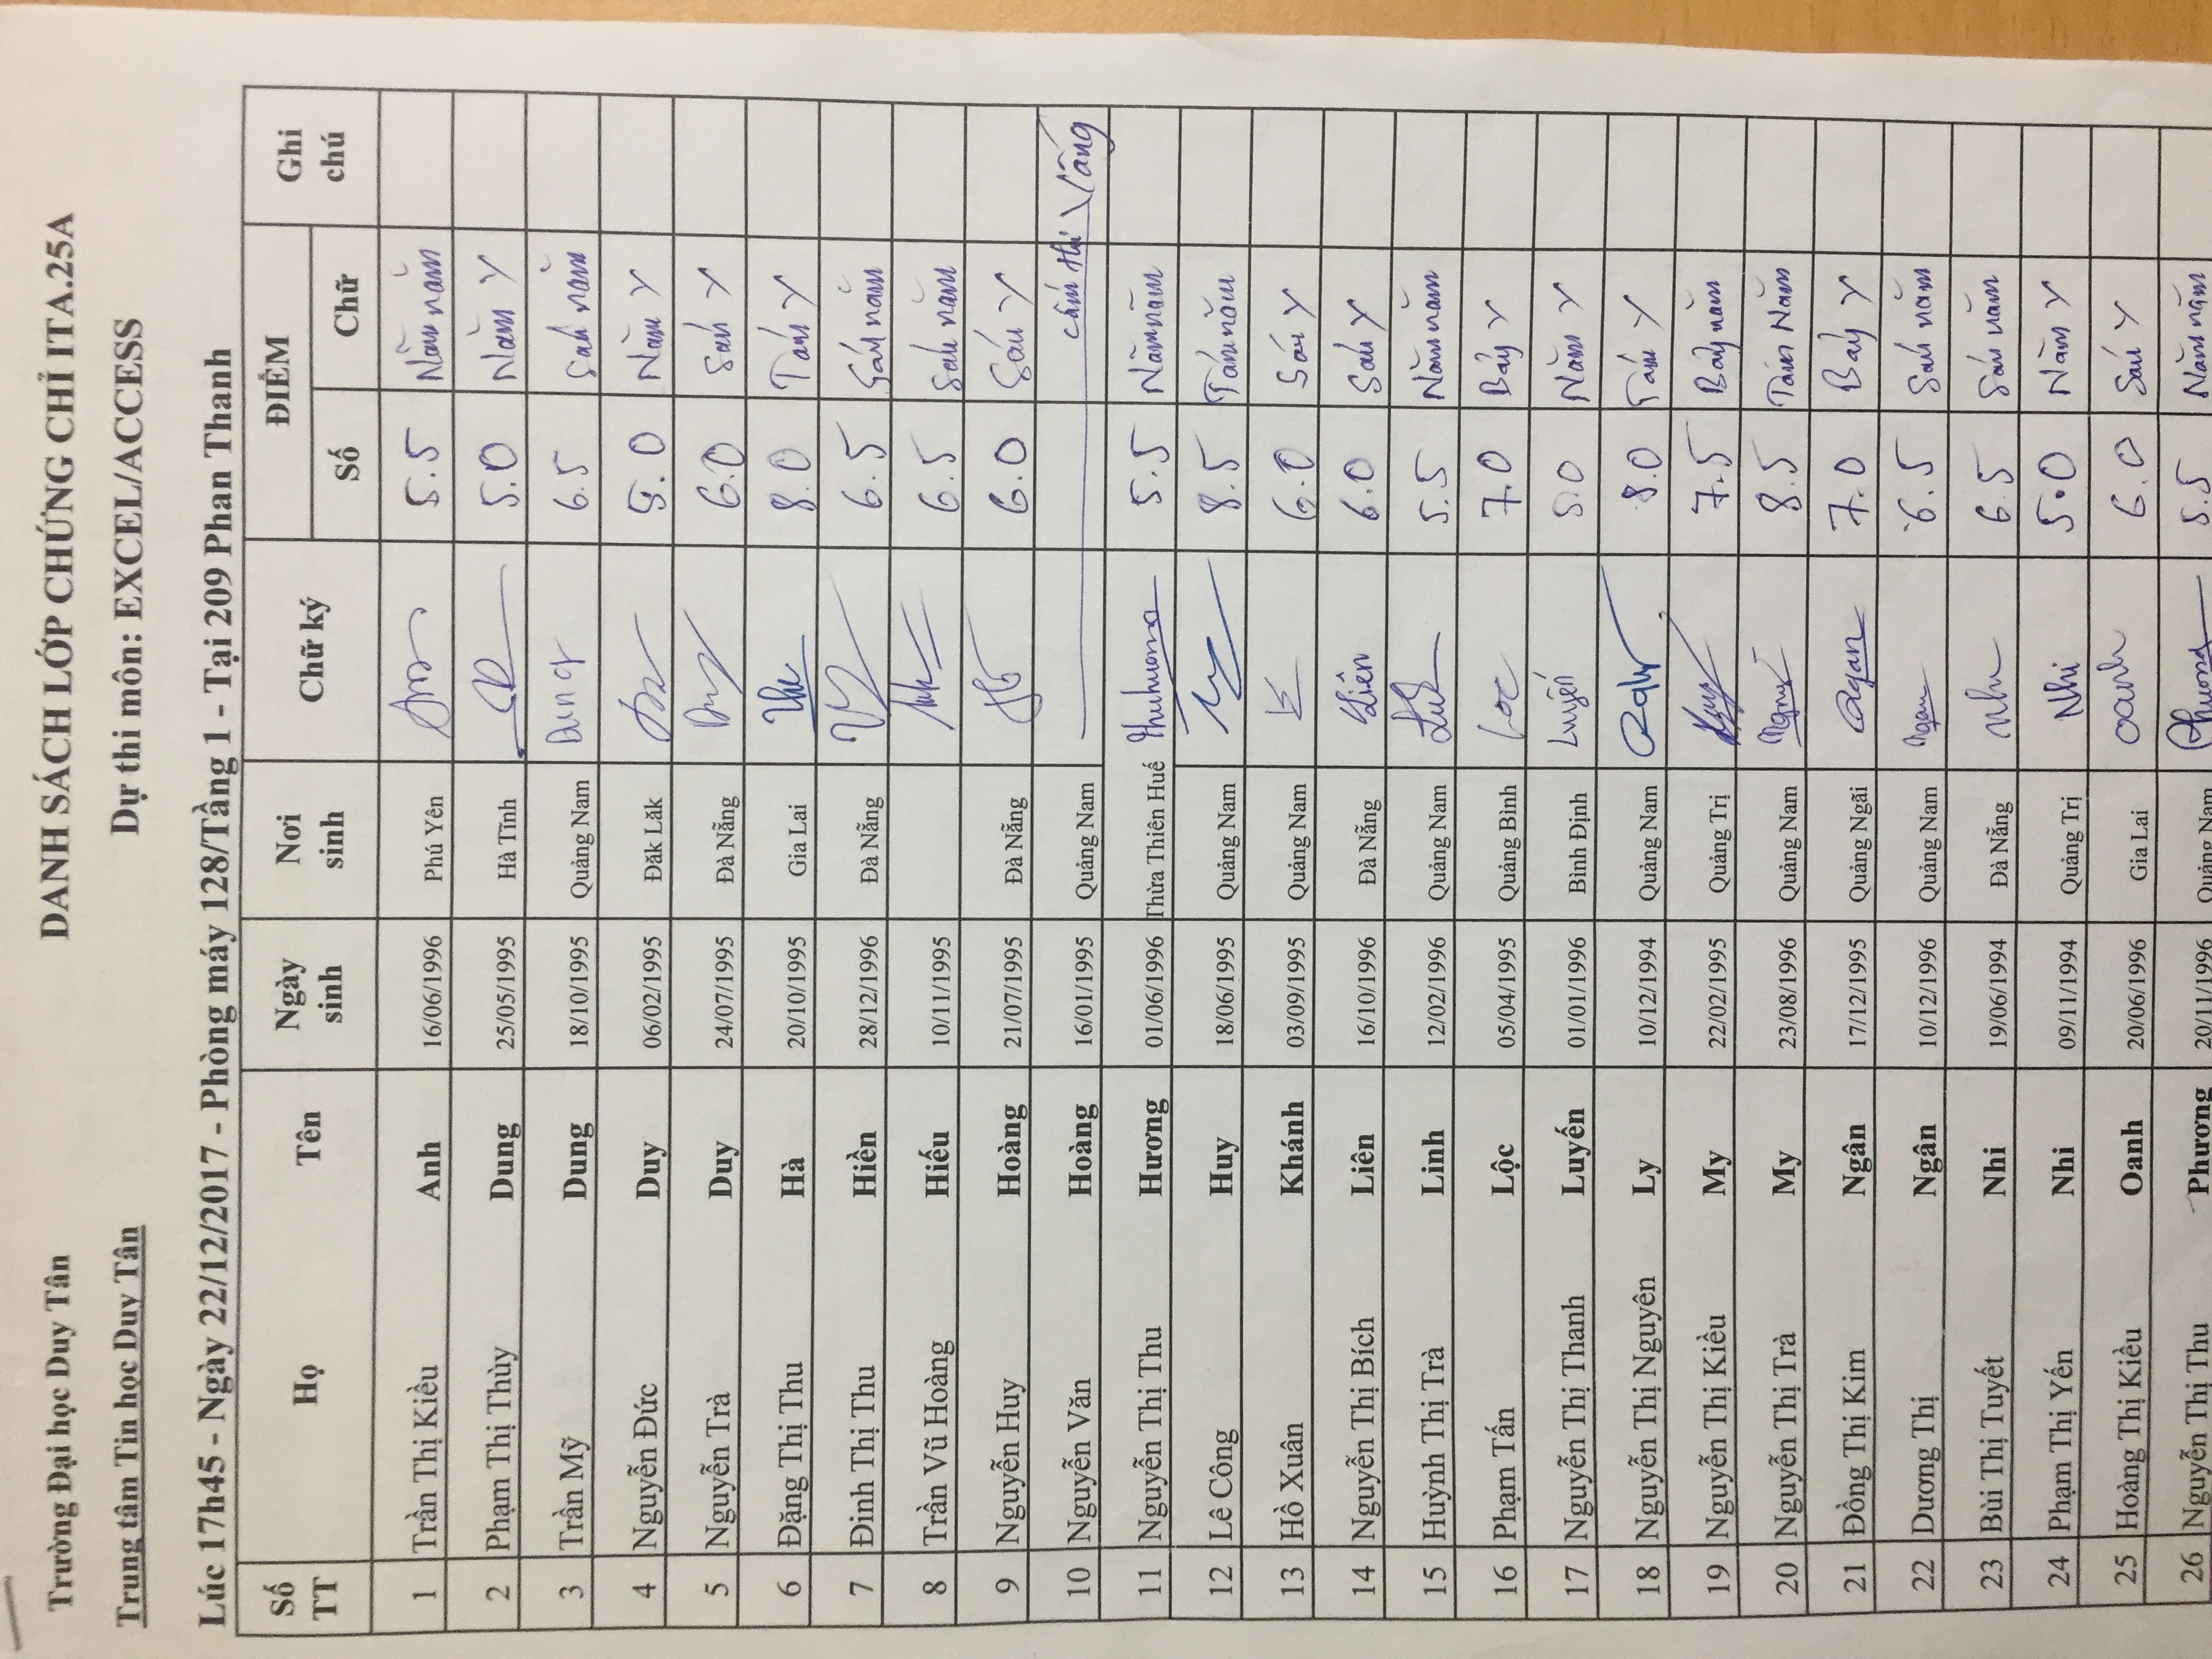 Trường Đại học Duy Tân DANH SÁCH LỚP CHỨNG CHỈ ITA.25A
Trung tâm Tin học Duy Tân Dự thi môn: EXCEL/ACCESS
Lúc 17h45 - Ngày 22/12/2017 - Phòng máy 128/Tầng 1 - Tại 209 Phan Thanh
Số TT Họ Tên Ngày sinh Nơi sinh Chữ ký ĐIỂM Số Chữ Ghi chú
1 Trần Thị Kiều Anh 16/06/1996 Phú Yên 5.5 Năm năm
2 Phạm Thị Thùy Dung 25/05/1995 Hà Tĩnh 5.0 Năm Y
3 Trần Mỹ Dung 18/10/1995 Quảng Nam Dung 6.5 Sáu năm
4 Nguyễn Đức Duy 06/02/1995 Đăk Lăk 5.0 Năm Y
5 Nguyễn Trà Duy 24/07/1995 Đà Nẵng Duy 6.0 Sáu Y
6 Đặng Thị Thu Hà 20/10/1995 Gia Lai 8.0 Tám Y
7 Đinh Thị Thu Hiền 28/12/1996 Đà Nẵng 6.5 Sáu năm
8 Trần Vũ Hoàng Hiếu 10/11/1995 6.5 Sáu năm
9 Nguyễn Huy Hoàng 21/07/1995 Đà Nẵng 6.0 Sáu Y
10 Nguyễn Văn Hoàng 16/01/1995 Quảng Nam cấm thi \ Vắng
11 Nguyễn Thị Thu Hương 01/06/1996 Thừa Thiên Huế thuhuong 5.5 Năm năm
12 Lê Công Huy 18/06/1995 Quảng Nam 8.5 Tám năm
13 Hồ Xuân Khánh 03/09/1995 Quảng Nam 6.0 Sáu Y
14 Nguyễn Thị Bích Liên 16/10/1996 Đà Nẵng Liên 6.0 Sáu Y
15 Huỳnh Thị Trà Linh 12/02/1996 Quảng Nam 5.5 Năm năm
16 Phạm Tấn Lộc 05/04/1995 Quảng Bình Loc 7.0 Bảy Y
17 Nguyễn Thị Thanh Luyến 01/01/1996 Bình Định Luyến 5.0 Năm Y
18 Nguyễn Thị Nguyên Ly 10/12/1994 Quảng Nam 8.0 Tám Y
19 Nguyễn Thị Kiều My 22/02/1995 Quảng Trị 7.5 Bảy năm
20 Nguyễn Thị Trà My 23/08/1996 Quảng Nam 8.5 Tám Năm
21 Đồng Thị Kim Ngân 17/12/1995 Quảng Ngãi 7.0 Bảy Y
22 Dương Thị Ngân 10/12/1996 Quảng Nam Ngân 6.5 Sáu năm
23 Bùi Thị Tuyết Nhi 19/06/1994 Đà Nẵng Nhi 6.5 Sáu năm
24 Phạm Thị Yến Nhi 09/11/1994 Quảng Trị Nhi 5.0 Năm Y
25 Hoàng Thị Kiều Oanh 20/06/1996 Gia Lai oanh 6.0 Sáu Y
26 Nguyễn Thị Thu Phương 20/11/1996 Quảng Nam Phương 5.5 Năm năm